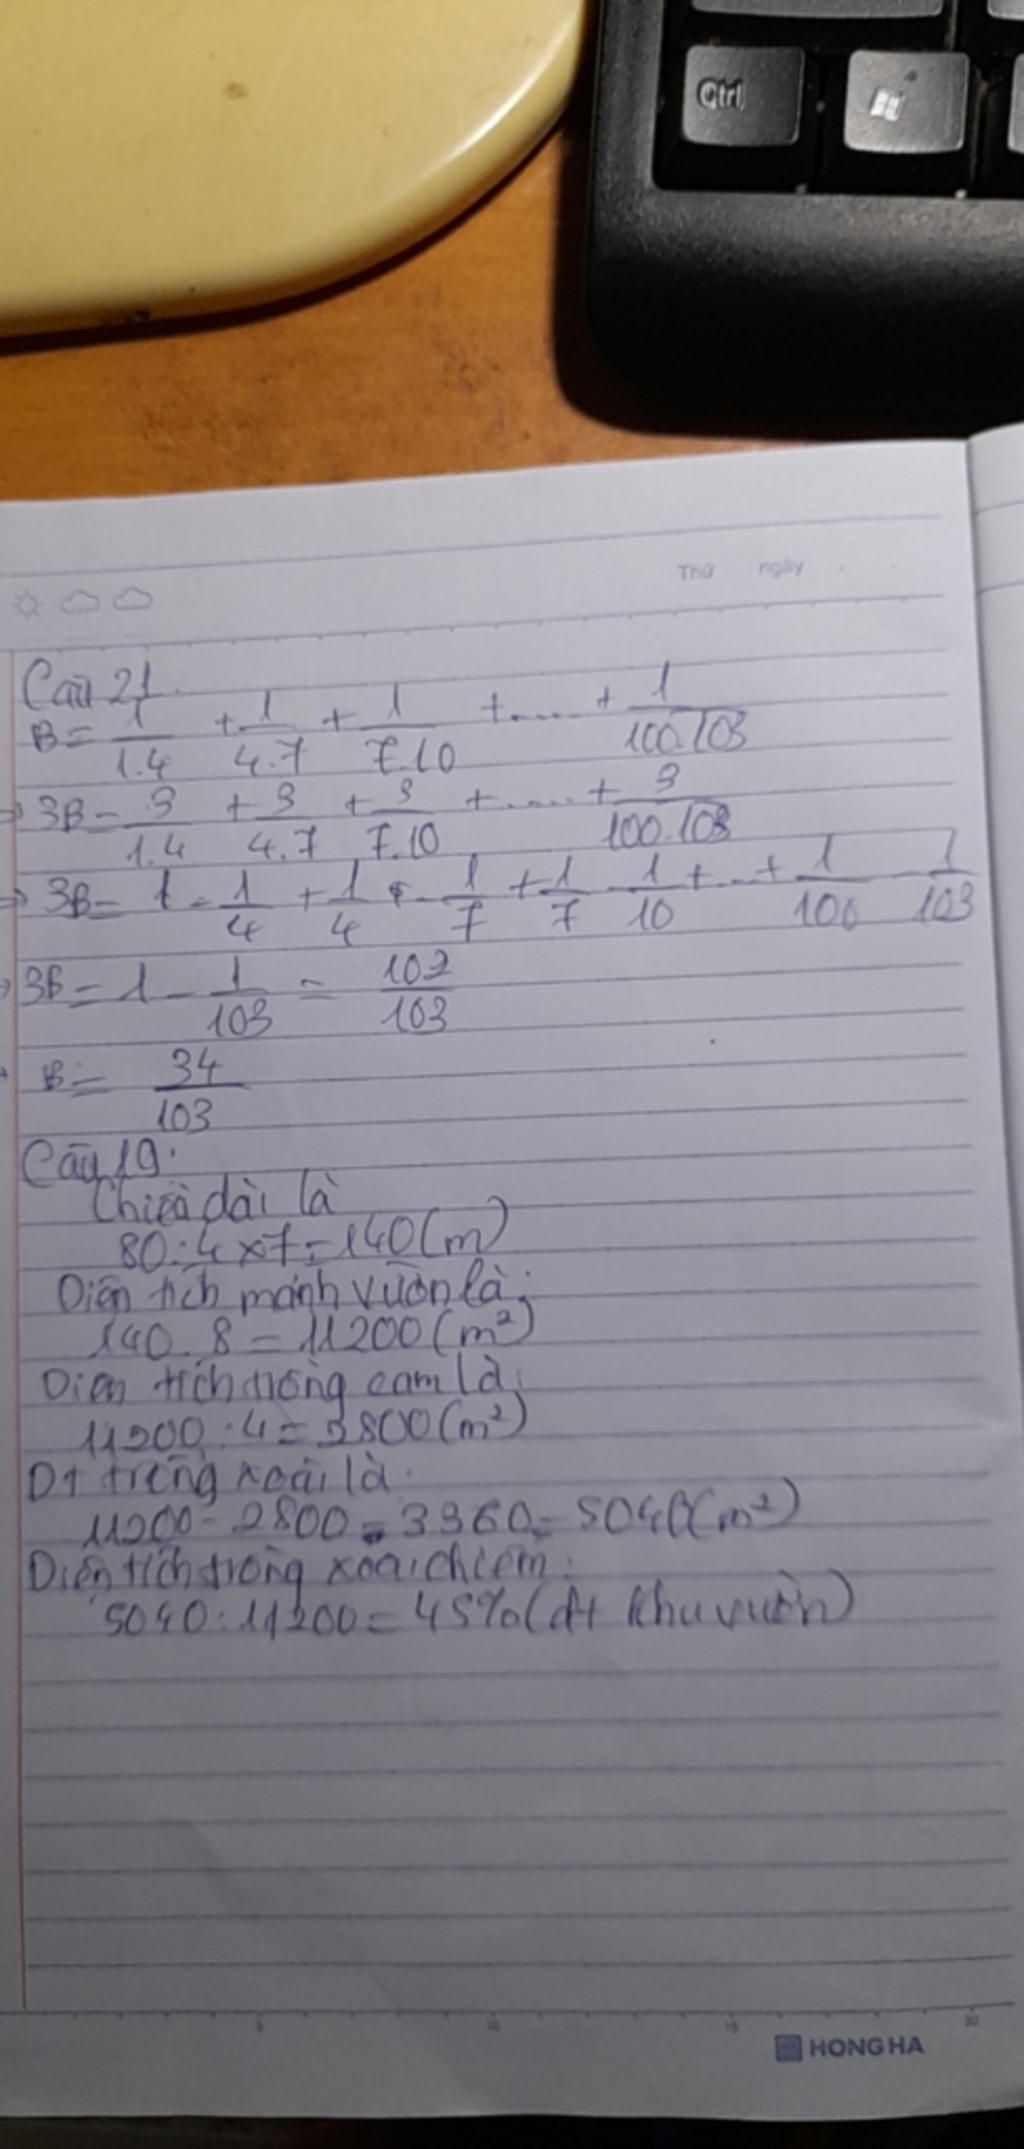 Ctrl
Thứ ngày
Câu 21
B = 1/1.4 + 1/4.7 + 1/7.10 + .... + 1/100.103
3B = 3/1.4 + 3/4.7 + 3/7.10 + .... + 3/100.103
3B = 1 - 1/4 + 1/4 - 1/7 + 1/7 - 1/10 + ... + 1/100 - 1/103
3B = 1 - 1/103 = 102/103
B = 34/103
Câu 19:
Chiều dài là
80 : 4 x 7 = 140 (m)
Diện tích mảnh vườn là:
140 . 8 = 11200 (m²)
Diện tích trồng cam là:
11200 : 4 = 2800 (m²)
Dt trồng xoài là:
11200 - 2800 - 3360 = 5040 (m²)
Diện tích trồng xoài chiếm:
5040 : 11200 = 45% (dt khu vườn)
5 10 15 20
HONG HA